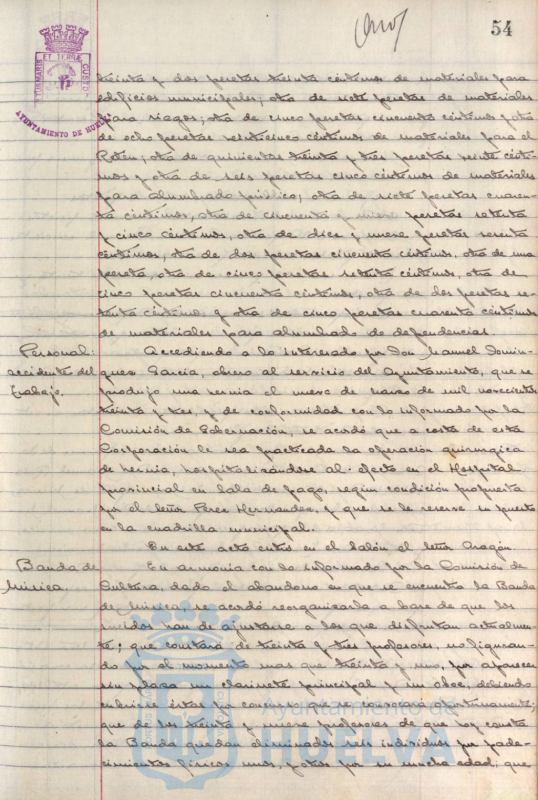 54
AYUNTAMIENTO DE HUELVA
treinta y dos pesetas treinta céntimos de materiales para
edificios municipales; otra de siete pesetas de materiales
para riegos; otra de cinco pesetas cincuenta céntimos y otra
de ocho pesetas veinticinco céntimos de materiales para el
otra de quinientas treinta y tres pesetas veinte cénti-
mos y otra de seis pesetas cinco céntimos de materiales
para alumbrado público; otra de siete pesetas cuaren-
ta céntimos, otra de cincuenta y nueve pesetas setenta
y cinco céntimos, otra de diez y nueve pesetas sesenta
céntimos, otra de dos pesetas cincuenta céntimos, otra de una
peseta, otra de cinco pesetas setenta céntimos, otra de
cinco pesetas cincuenta céntimos, otra de dos pesetas se-
tenta céntimos y otra de cinco pesetas cuarenta céntimos
de materiales para alumbrado de dependencias.
Personal:
accidentes del
trabajo.
Accediendo a lo interesado por Don Manuel Domin-
guez García, obrero al servicio del Ayuntamiento, que se
produjo una hernia el nueve de marzo de mil novecientos
treinta y tres, y de conformidad con lo informado por la
Comisión de Gobernación, se acordó que a costa de esta
Corporación le sea practicada la operación quirurgica
de hernia, hospitalizándose al efecto en el Hospital
provincial en sala de pago, según condición propuesta
por el señor Perez Hernandez, y que se le reserve su puesto
en la cuadrilla municipal.
En este acto entra en el salón el señor Aragón.
Banda de
Música.
En armonía con lo informado por la Comisión de
Cultura, dado el abandono en que se encuentra la Banda
de Música, se acordó reorganizarla a base de que los
sueldos han de ajustarse a los que disfrutan actualmen-
te; que constará de treinta y tres profesores, no figuran-
do por el momento mas que treinta y uno, por aparecer
sin plaza un clarinete principal y un oboe, debiendo
cubrirse éstas por concurso que se convocará oportunamente;
que de los treinta y nueve profesores de que hoy consta
la Banda quedan eliminados seis individuos por pade-
cimientos físicos unos, y otros por su mucha edad; que
Ayuntamiento de
HUELVA